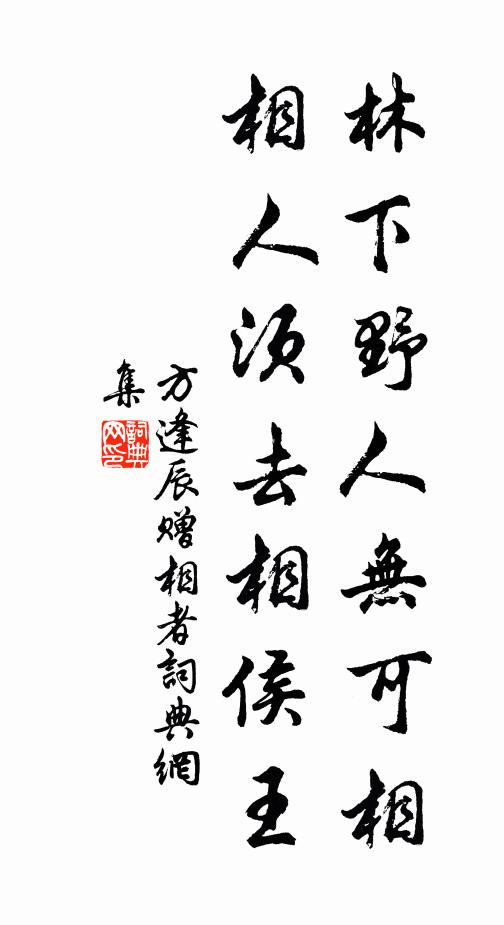 林下野人無可相
相人須去相侯王
方逢辰贈相者詞典網
集
詞典網印